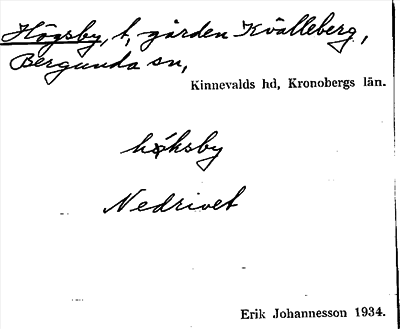 Högsby, t, gården Kvälleberg,
Bergunda sn,
Kinnevalds hd, Kronobergs län.
höksby
Nedrivet
Erik Johannesson 1934.